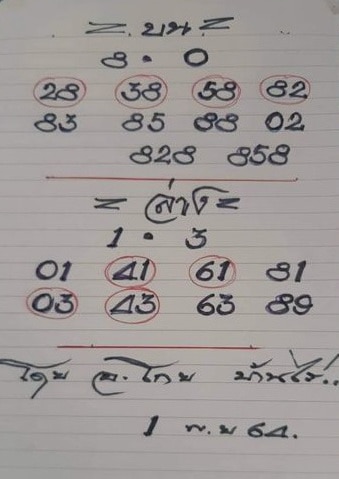 = บน =
8 • 0
28 38 58 82
83 85 88 02
828 858
= ล่าง =
1 • 3
01 41 61 81
03 43 63 89
โดย อ. โทย บ้านไร่..
1 พ.ย 64.